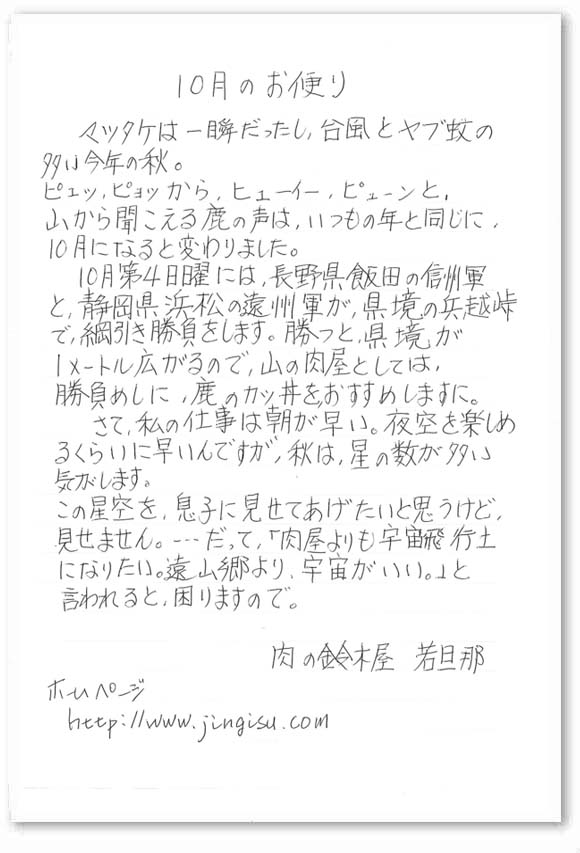 10月のお便り
マツタケは一瞬だったし、台風とヤブ蚊の
多い今年の秋。
ピュッ、ピョッから、ヒューイー、ピューンと、
山から聞こえる鹿の声は、いつもの年と同じに、
10月になると変わりました。
10月第4日曜には、長野県飯田の信州軍
と、静岡県浜松の遠州軍が、県境の兵越峠
で、綱引き勝負をします。勝つと、県境が
1メートル広がるので、山の肉屋としては、
勝負めしに、鹿のカツ丼をおすすめしますに。
さて、私の仕事は朝が早い。夜空を楽しめ
るくらいに早いんですが、秋は、星の数が多い
気がします。
この星空を、息子に見せてあげたいと思うけど、
見せません。…だって、「肉屋よりも宇宙飛行士
になりたい。遠山郷より、宇宙がいい。」と
言われると、困りますので。
肉の鈴木屋 若旦那
ホームページ
http://www.jingisu.com